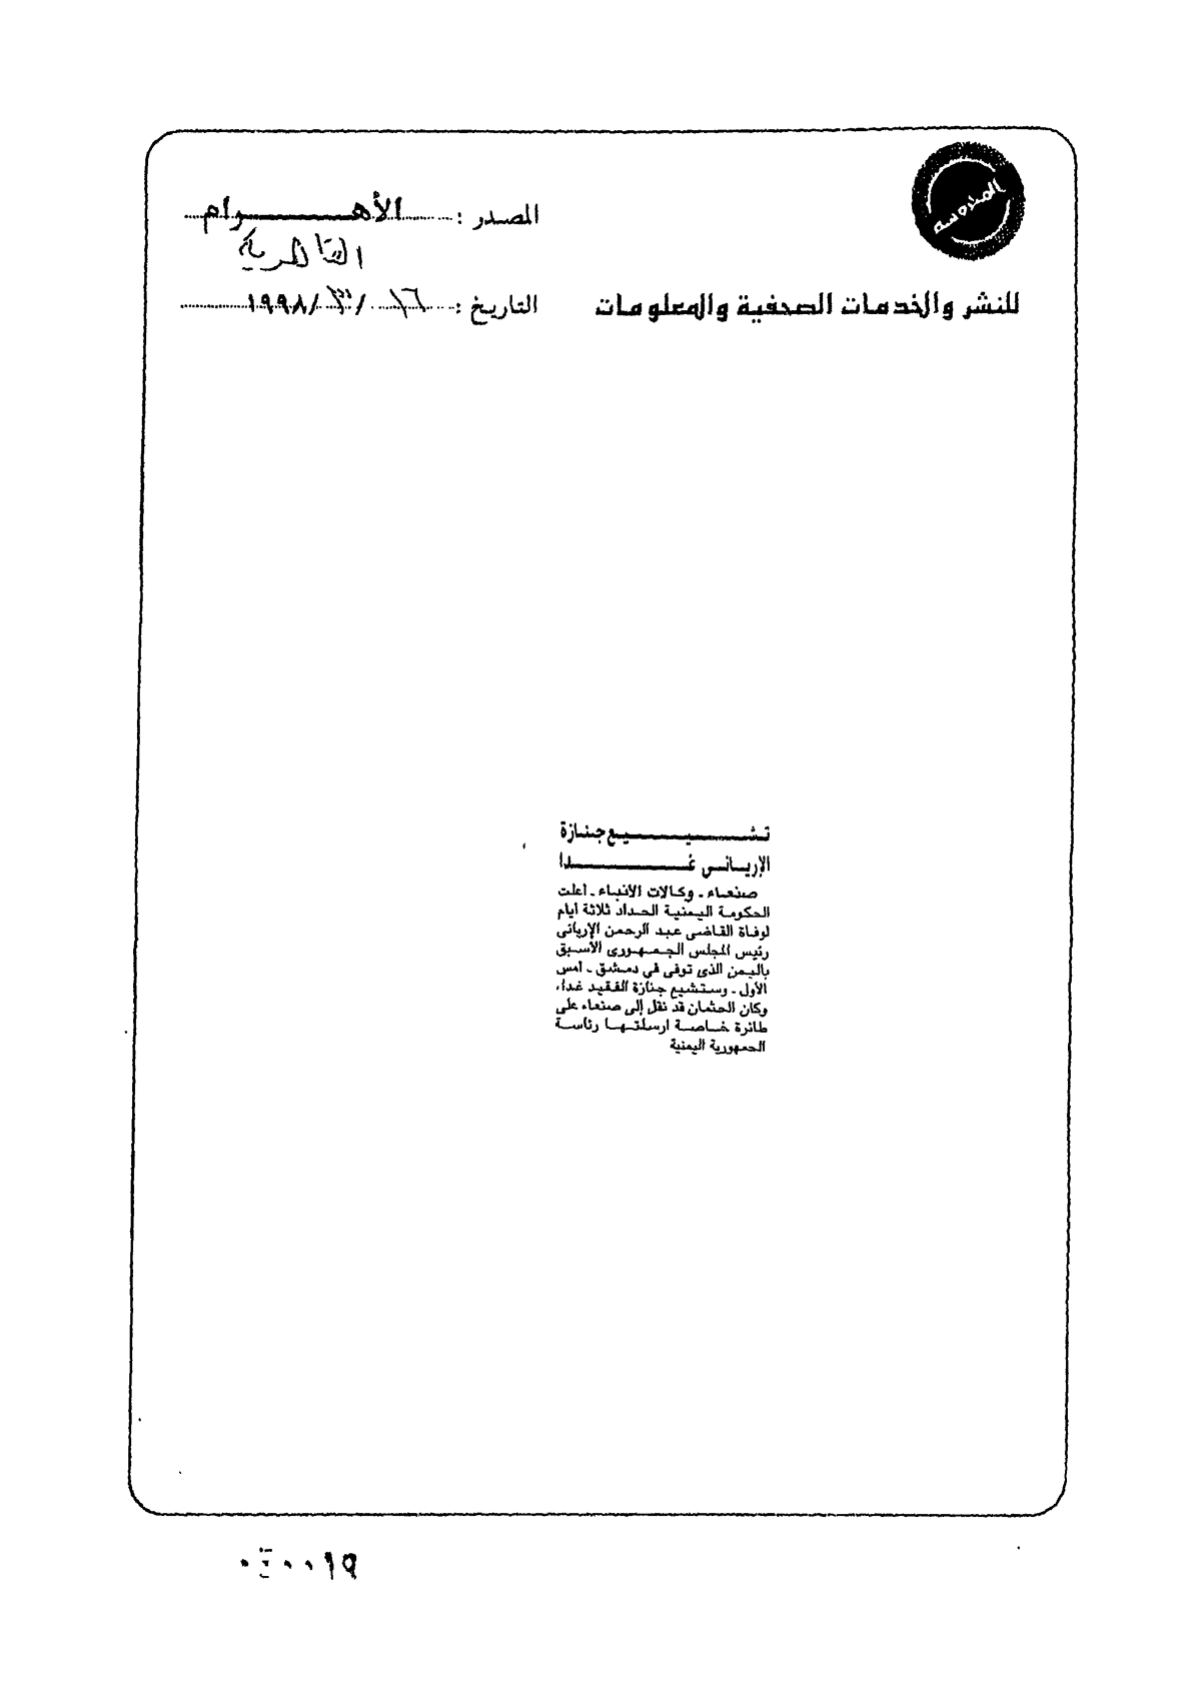 المصدر : الأهـــــرام
القاهرية
للنشر والخدمات الصحفية والمعلومات
التاريخ : ١٦ / ٣ / ١٩٩٨
تشـــــيـــــيع جنازة
الإريـانـى غـــــــــدا
صنعـاء ـ وكـالات الأنبـاء ـ أعلت
الحكومة اليمنية الحداد ثلاثة أيام
لوفاة القاضى عبد الرحمن الإريانى
رئيس المجلس الجمـهـورى الأسـبق
باليمن الذى توفى في دمشق ـ أمس
الأول ـ وستشيع جنازة الفقيد غدا،
وكان الجثمان قد نقل إلى صنعاء على
طائرة خـاصـة ارسلتـهـا رئاسـة
الجمهورية اليمنية